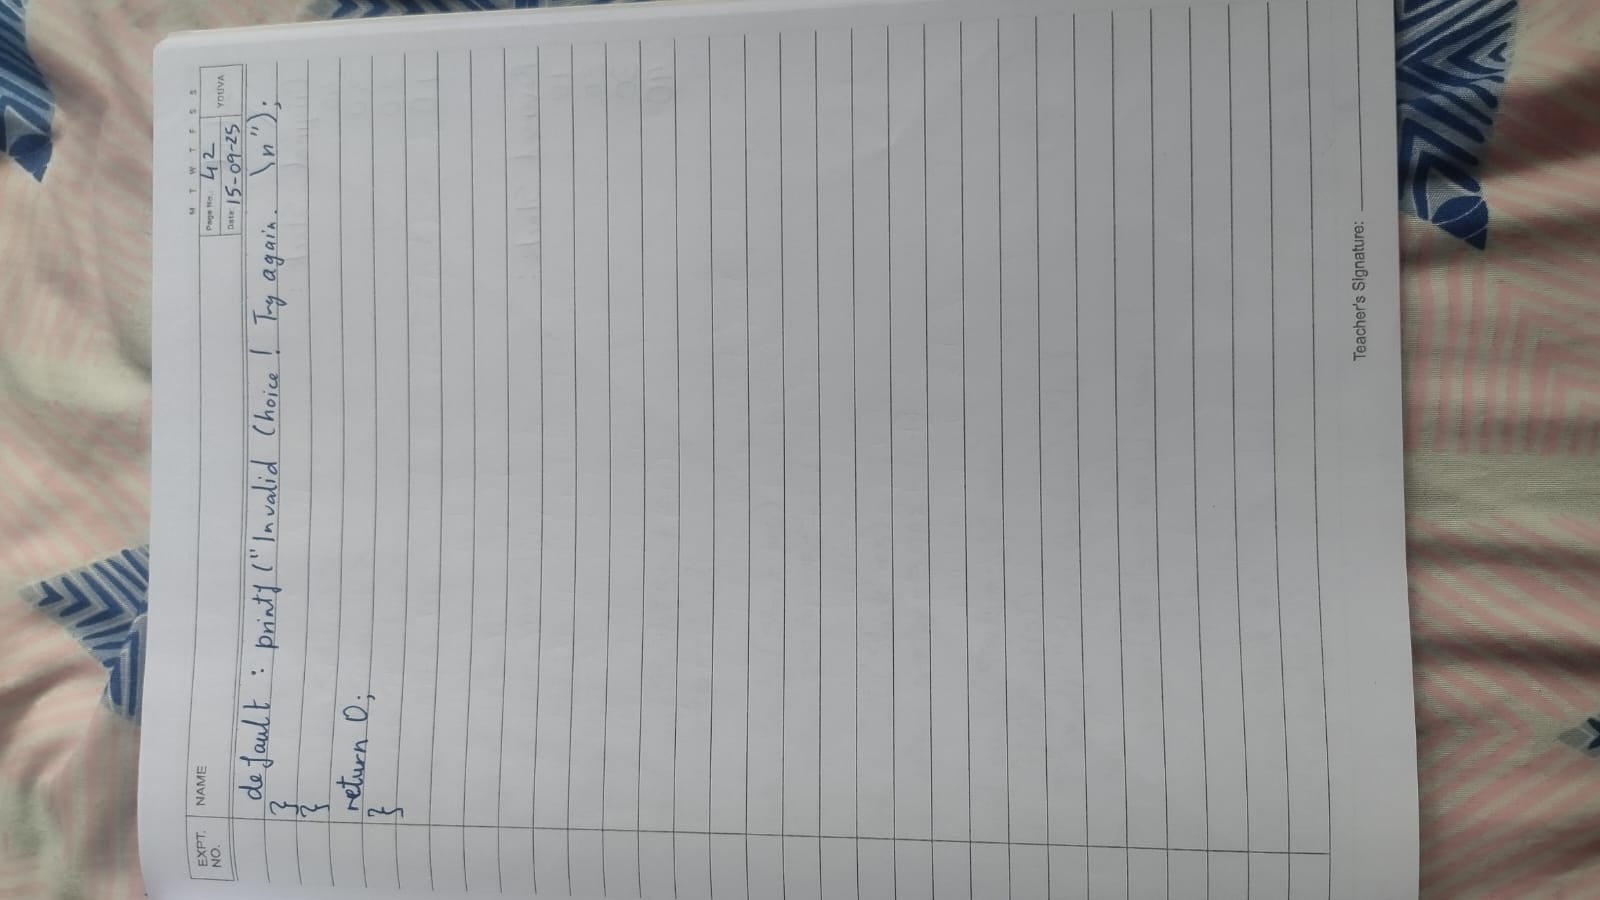 EXPT. NO.
NAME
M T W T F S S
Page No.: 42
Date: 15-09-25
YOUVA
default : printf ("Invalid Choice ! Try again. \n");
}
}
return 0;
}
Teacher's Signature: